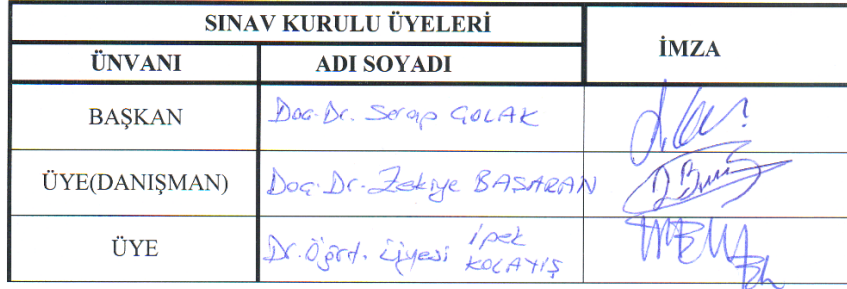 SINAV KURULU ÜYELERİ
İMZA
ÜNVANI ADI SOYADI
BAŞKAN Doç. Dr. Serap ÇOLAK
ÜYE(DANIŞMAN) Doç. Dr. Zekiye BAŞARAN
ÜYE Dr. Öğrt. Üyesi İpek KOLAYIŞ